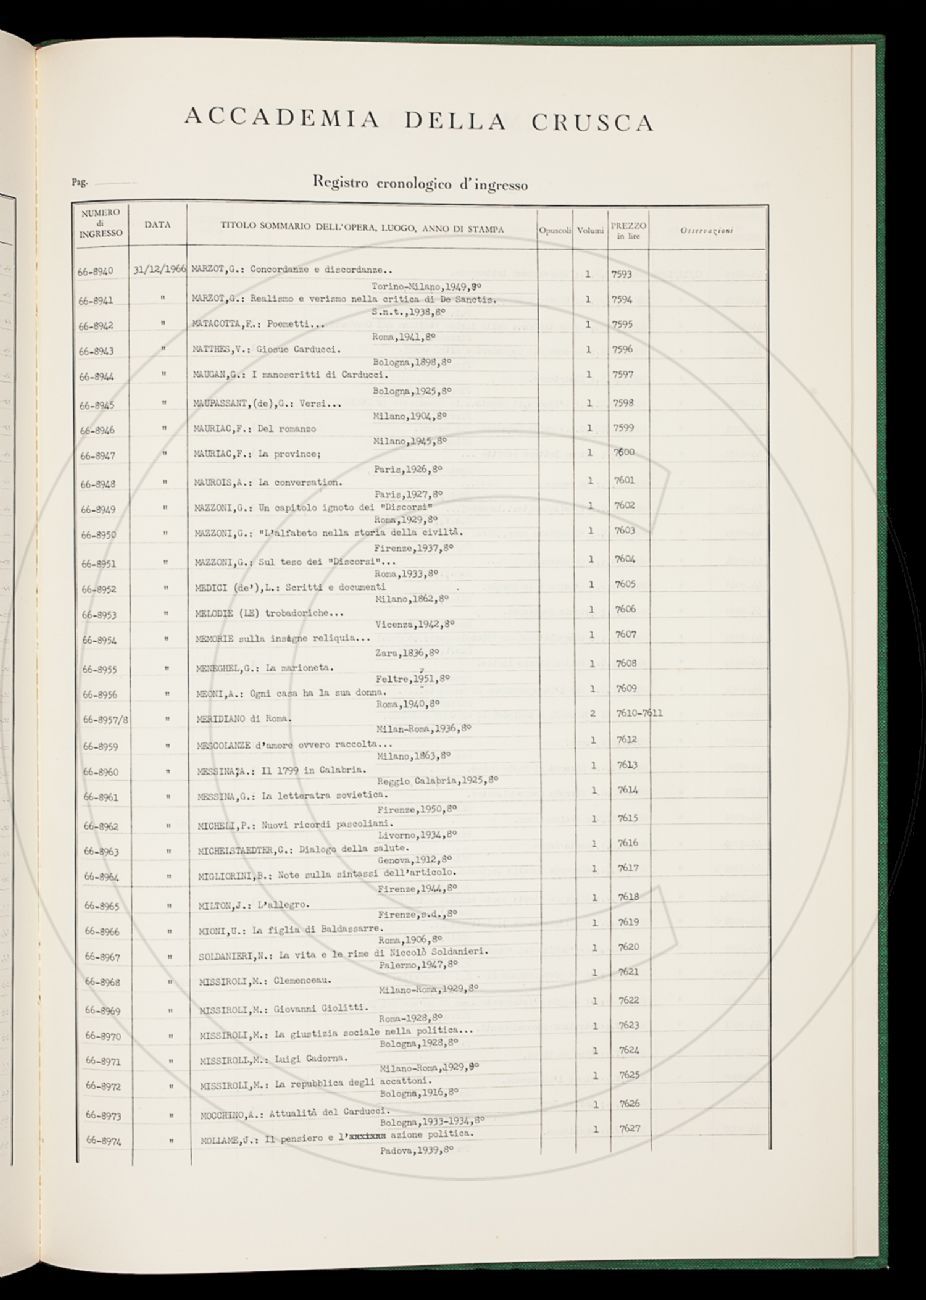 ACCADEMIA DELLA CRUSCA
Pag.
Registro cronologico d'ingresso
NUMERO di INGRESSO DATA TITOLO SOMMARIO DELL'OPERA, LUOGO, ANNO DI STAMPA Opuscoli Volumi PREZZO in lire Osservazioni
66-8940 31/12/1966 MARZOT,G.: Concordanze e discordanze.. 1 7593
Torino-Milano,1949,8º
66-8941 " MARZOT,G.: Realismo e verismo nella critica di De Sanctis. 1 7594
S.n.t.,1938,8º
66-8942 " MATACOTTA,F.: Poemetti... 1 7595
Roma,1941,8º
66-8943 " MATTHES,V.: Giosue Carducci. 1 7596
Bologna,1898,8º
66-8944 " MAUGAN,G.: I manoscritti di Carducci. 1 7597
Bologna,1925,8º
66-8945 " MAUPASSANT,(de),G.: Versi... 1 7598
Milano,1904,8º
66-8946 " MAURIAC,F.: Del romanzo 1 7599
Milano,1945,8º
66-8947 " MAURIAC,F.: La province; 1 7600
Paris,1926,8º
66-8948 " MAUROIS,A.: La conversation. 1 7601
Paris,1927,8º
66-8949 " MAZZONI,G.: Un capitolo ignoto dei "Discorsi" 1 7602
Roma,1929,8º
66-8950 " MAZZONI,G.: "L'alfabeto nella storia della civiltà. 1 7603
Firenze,1937,8º
66-8951 " MAZZONI,G.; Sul teso dei "Discorsi"... 1 7604
Roma,1933,8º
66-8952 " MEDICI (de'),L.: Scritti e documenti 1 7605
Milano,1862,8º
66-8953 " MELODIE (LE) trobadoriche... 1 7606
Vicenza,1942,8º
66-8954 " MEMORIE sulla insigne reliquia... 1 7607
Zara,1836,8º
66-8955 " MENEGHEL,G.: La marioneta. 1 7608
Feltre,1951,8º
66-8956 " MEONI,A.: Ogni casa ha la sua donna. 1 7609
Roma,1940,8º
66-8957/8 " MERIDIANO di Roma. 2 7610-7611
Milan-Roma,1936,8º
66-8959 " MESCOLANZE d'amore ovvero raccolta... 1 7612
Milano,1863,8º
66-8960 " MESSINA,A.: Il 1799 in Calabria. 1 7613
Reggio Calabria,1925,8º
66-8961 " MESSINA,G.: La letteratra sovietica. 1 7614
Firenze,1950,8º
66-8962 " MICHELI,P.: Nuovi ricordi pascoliani. 1 7615
Livorno,1934,8º
66-8963 " MICHELSTAEDTER,C.: Dialogo della salute. 1 7616
Genova,1912,8º
66-8964 " MIGLIORINI,B.: Note sulla sintassi dell'articolo. 1 7617
Firenze,1944,8º
66-8965 " MILTON,J.: L'allegro. 1 7618
Firenze,s.d.,8º
66-8966 " MIONI,U.: La figlia di Baldassarre. 1 7619
Roma,1906,8º
66-8967 " SOLDANIERI,N.: La vita e le rime di Niccolò Soldanieri. 1 7620
Palermo,1947,8º
66-8968 " MISSIROLI,M.: Clemenceau. 1 7621
Milano-Roma,1929,8º
66-8969 " MISSIROLI,M.: Giovanni Giolitti. 1 7622
Roma-1928,8º
66-8970 " MISSIROLI,M.: La giustizia sociale nella politica... 1 7623
Bologna,1928,8º
66-8971 " MISSIROLI,M.: Luigi Cadorna. 1 7624
Milano-Roma,1929,8º
66-8972 " MISSIROLI,M.: La repubblica degli accattoni. 1 7625
Bologna,1916,8º
66-8973 " MOCCHINO,A.: Attualità del Carducci. 1 7626
Bologna,1933-1934,8º
66-8974 " MOLLAME,J.: Il pensiero e l' azione politica. 1 7627
Padova,1939,8º